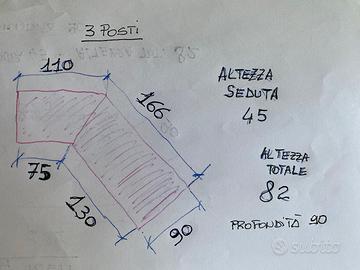 3 POSTI
110
166
75
130
90
ALTEZZA
SEDUTA
45
ALTEZZA
TOTALE
82
PROFONDITÀ 90
subito